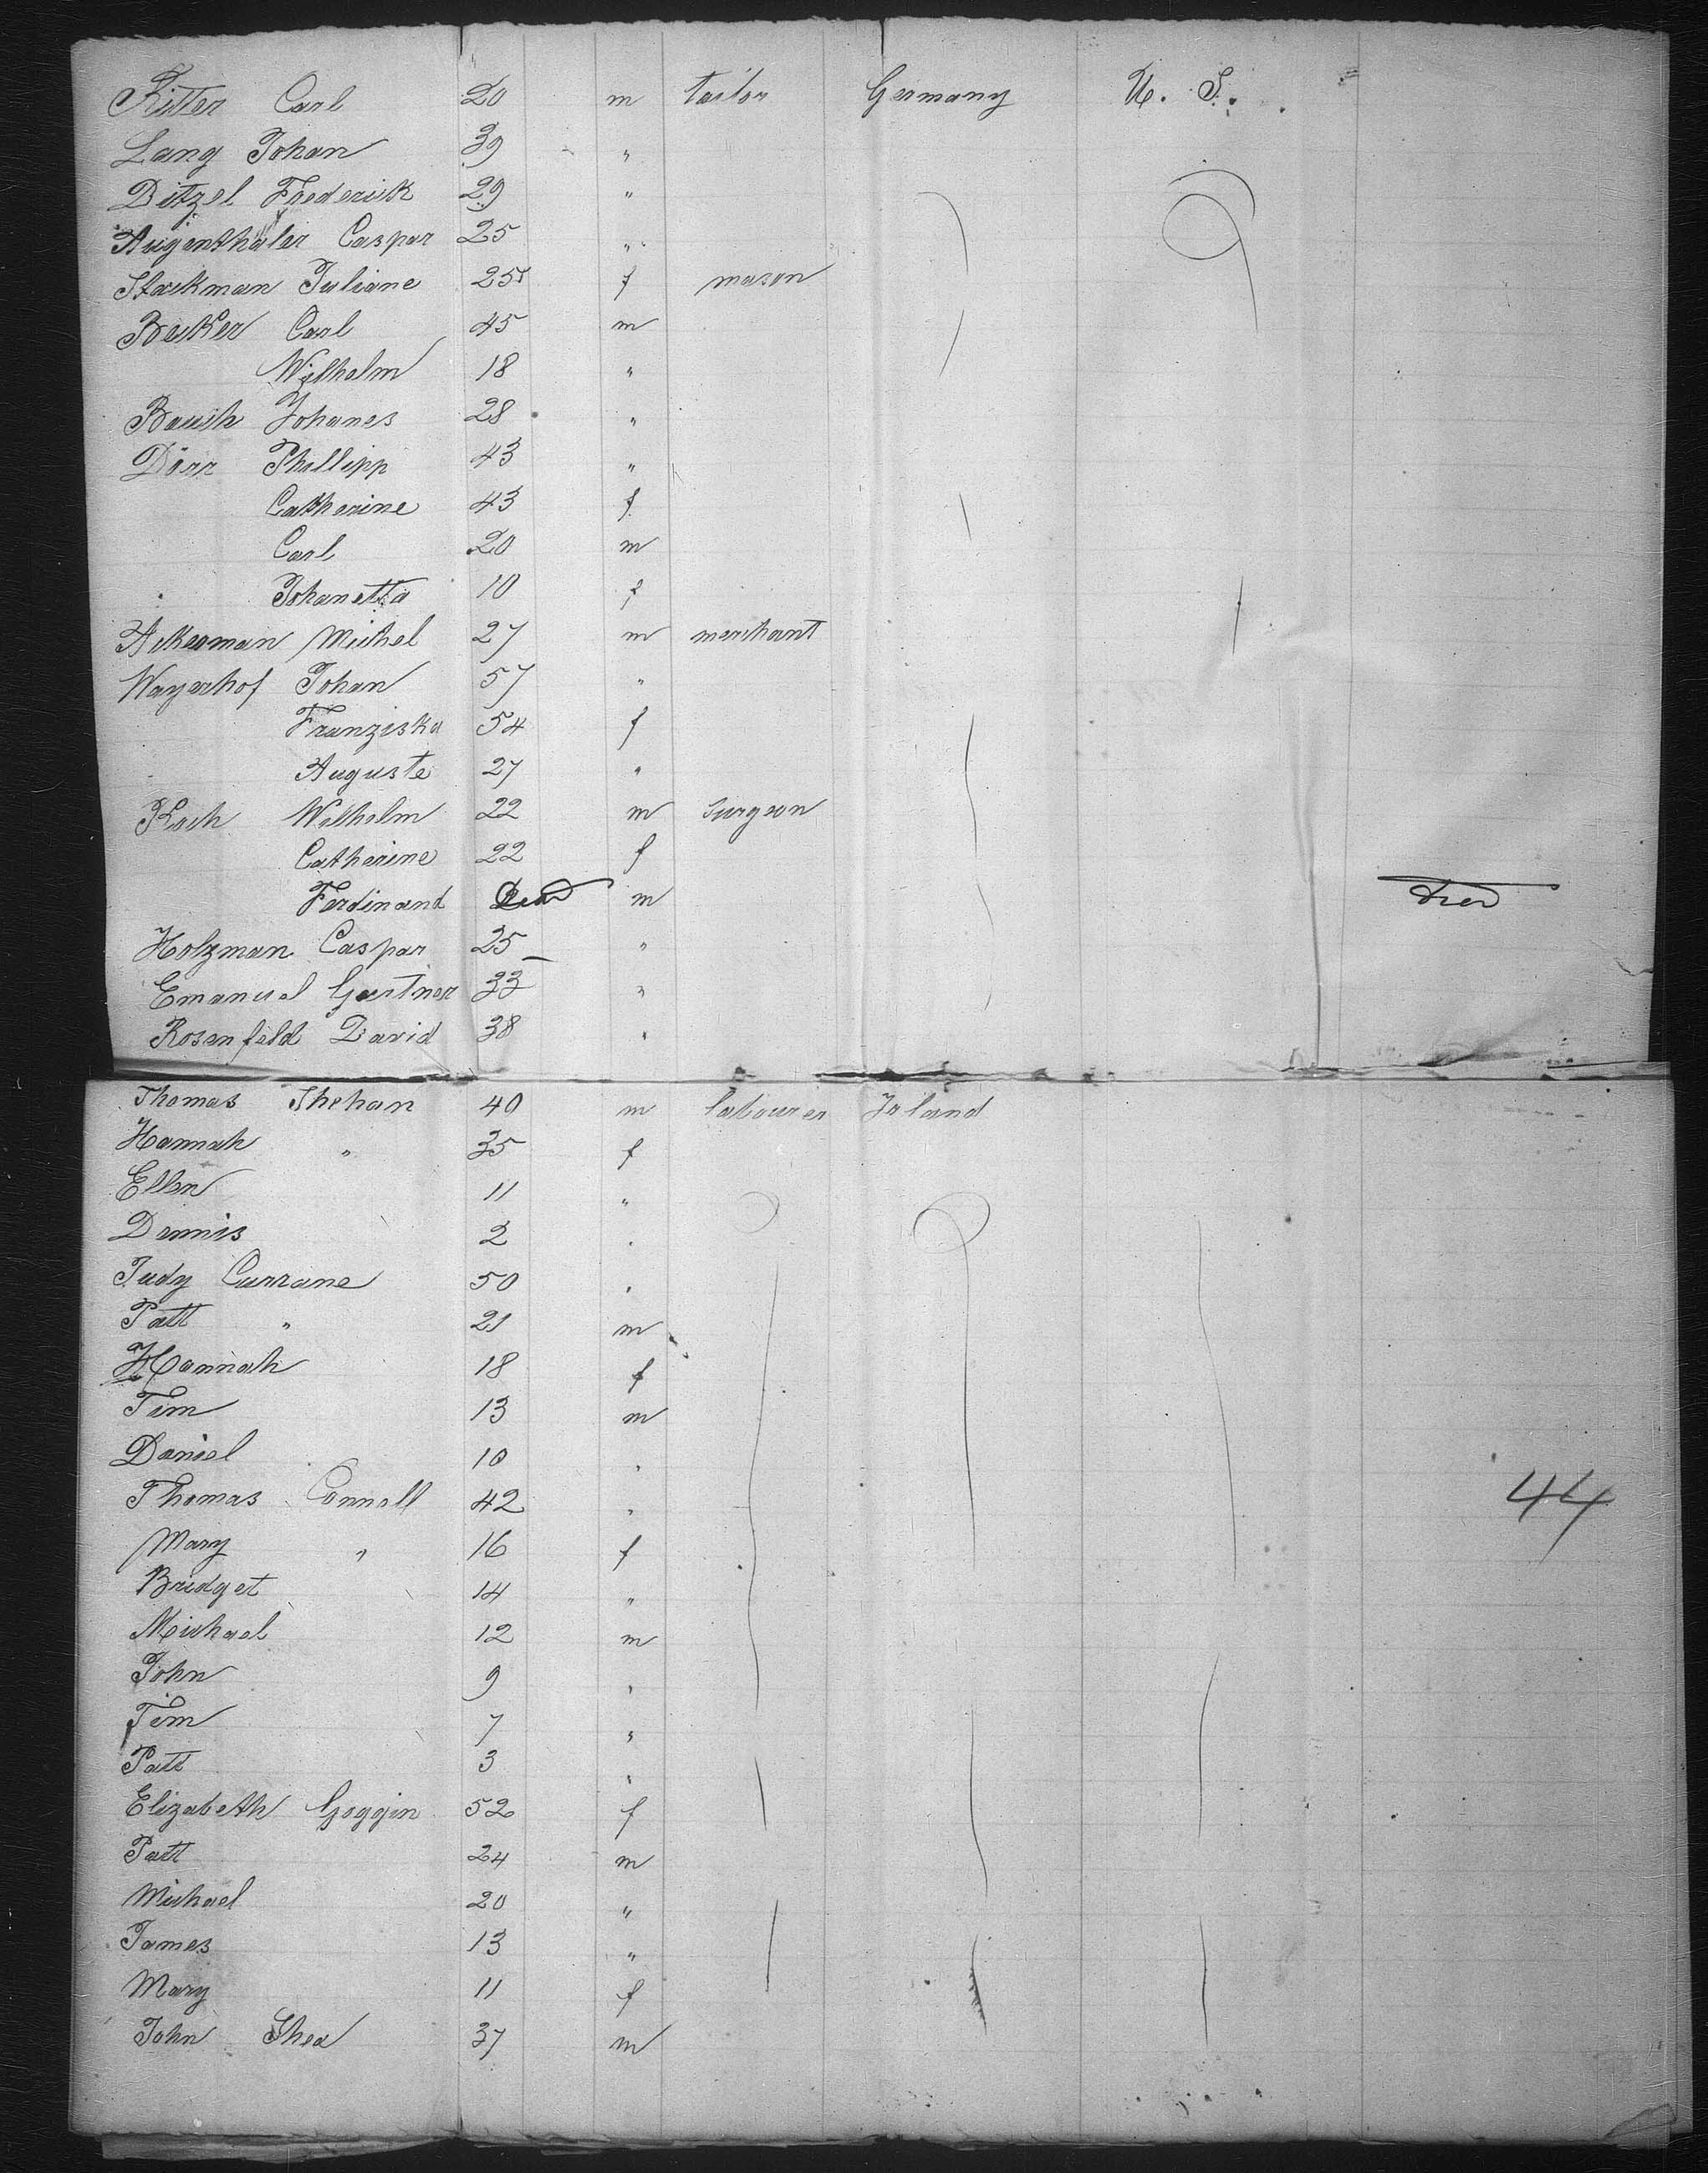 Ritter Carl 20 m tailor Germany U. S.
Lang Johan 39 "
Ditzel Frederick 29 "
Augenthaler Caspar 25 "
Stockman Juliane 25 f mason
Becker Carl 45 m
Wilhelm 18 "
Baush Johanes 28 "
Dörr Phillipp 43 "
Catherine 43 f
Carl 20 m
Johanetta 10 f
Ackerman Michel 27 m merchant
Wayerhof Johan 57 "
Franziska 54 f
Auguste 27 "
Koch Wilhelm 22 m surgeon
Catherine 22 f
Ferdinand m died
Holzman Caspar 25 "
Emanuel Gertner 33 "
Rosenfeld David 38 "
Thomas Shehan 40 m labourer Irland
Hannah " 35 f
Ellen 11 "
Dennis 2 "
Judy Currane 50 "
Patt " 21 m
Hannah 18 f
Tim 13 m
Daniel 10 "
Thomas Connell 42 "
44
Mary " 16 f
Bridget 14 "
Michael 12 m
John 9 "
Tim 7 "
Patt 3 "
Elizabeth Goggin 52 f
Patt 24 m
Michael 20 "
James 13 "
Mary 11 f
John Shea 37 m